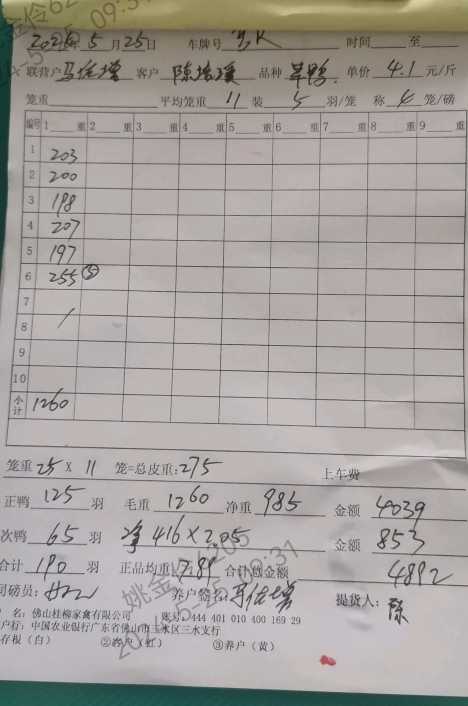 2025年 5 月 25 日 车牌号 时间 至
联营户 客户 陈 品种 鸭 单价 4.1 元/斤
笼重 平均笼重 11 装 5 羽/笼 称 笼/磅
编号 1 重 2 重 3 重 4 重 5 重 6 重 7 重 8 重 9 重
1 203
2 200
3 198
4 207
5 197
6 255 ⑤
7
8 /
9
10
小计 1260
笼重 25 × 11 笼=总皮重: 275 上车费
正鸭 125 羽 毛重 1260 净重 985 金额 4039
次鸭 65 羽 净 416 × 2.05 金额 853
合计 190 羽 正品均重 7.89 合计总金额 4892
司磅员: 养户签名: 提货人: 陈
名: 佛山桂柳家禽有限公司 账号: 444 401 010 400 169 29
户行: 中国农业银行广东省佛山市三水区三水支行
存根(白) ②客户(红) ③养户(黄)